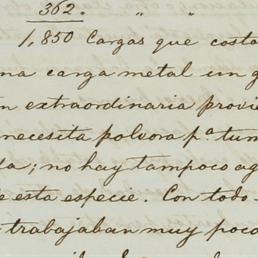 362. " "
1,850 Cargas que costa
na carga metal un g
n extraordinaria provi
necesita polvora pª tum
da; no hay tampoco ag
e esta especie. Con todo
trabajaban muy poco